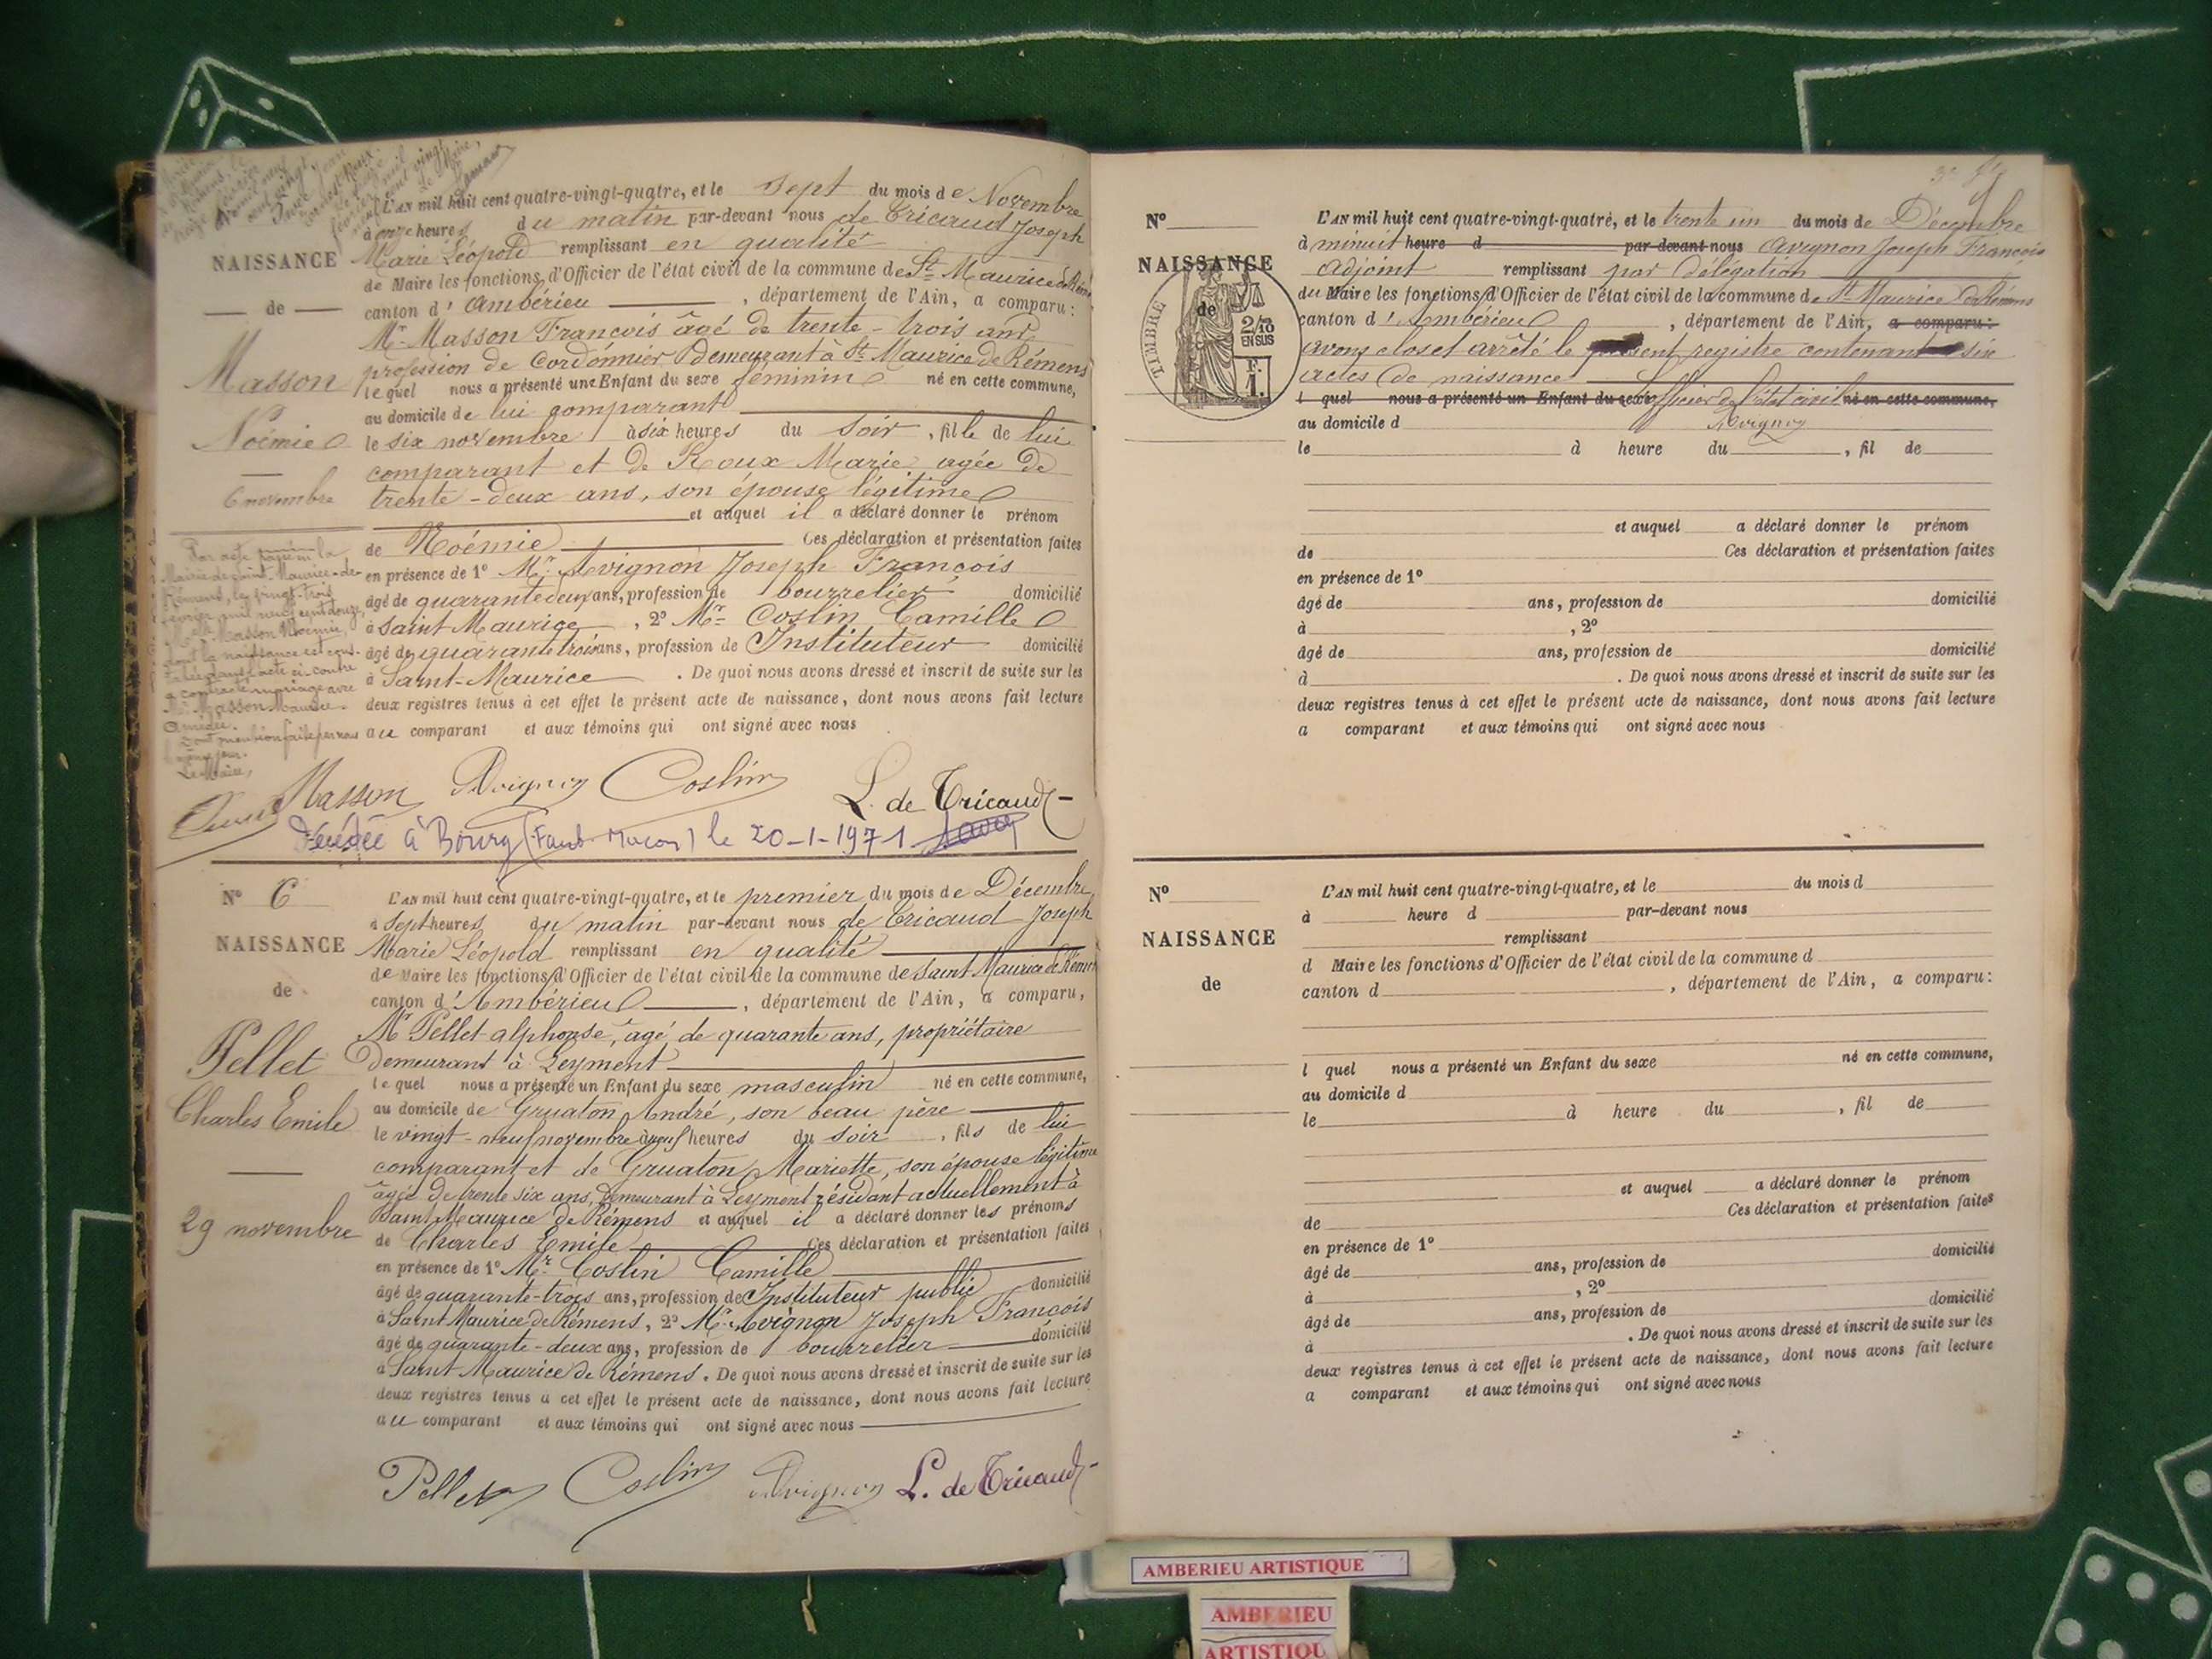 L'AN mil huit cent quatre-vingt-quatre, et le sept du mois de Novembre
à onze heures du matin par-devant nous de Tricaud Joseph
NAISSANCE
Marie Léopold remplissant en qualité
de Maire les fonctions d'Officier de l'état civil de la commune de St Maurice de Rémens
de
canton d'Ambérieu, département de l'Ain, a comparu:
Mr Masson François âgé de trente-trois ans
profession de Cordonnier demeurant à St Maurice de Rémens
Masson
lequel nous a présenté une Enfant du sexe féminin né en cette commune,
au domicile de lui comparant
Noémie
le six novembre à six heures du soir, fille de lui
comparant et de Roux Marie agée de
6 novembre
trente-deux ans, son épouse légitime
et auquel il a déclaré donner le prénom
de Noémie Ces déclaration et présentation faites
en présence de 1º Mr Avignon Joseph François
âgé de quarante deux ans, profession de bourrelier domicilié
à Saint Maurice, 2º Mr Coslin Camille
âgé de quarante trois ans, profession de Instituteur domicilié
à Saint-Maurice. De quoi nous avons dressé et inscrit de suite sur les
deux registres tenus à cet effet le présent acte de naissance, dont nous avons fait lecture
au comparant et aux témoins qui ont signé avec nous
Par acte passé en la
Mairie de Saint-Maurice-de-
Rémens, le vingt-trois
février mil neuf cent douze,
Masson Noémie,
dont la naissance est cons-
tatée dans l'acte ci-contre
a contracté mariage avec
Mr Masson Maurice
Amédée.
Dont mention faite par nous
Le Maire,
Masson Avignon Coslin L. de Tricaud
Décédée à Bourg le 20-1-1971
Nº 6
L'AN mil huit cent quatre-vingt-quatre, et le premier du mois de Décembre
à sept heures du matin par-devant nous de Tricaud Joseph
NAISSANCE
Marie Léopold remplissant en qualité
de Maire les fonctions d'Officier de l'état civil de la commune de Saint Maurice de Rémens
de
canton d'Ambérieu, département de l'Ain, a comparu,
Mr Pellet alphonse, âgé de quarante ans, propriétaire
Pellet
demeurant à Leyment
lequel nous a présenté un Enfant du sexe masculin né en cette commune,
Charles Emile
au domicile de Gruaton André, son beau père
le vingt-neuf novembre à neuf heures du soir, fils de lui
comparant et de Gruaton Mariette, son épouse légitime
âgée de trente six ans, demeurant à Leyment résidant actuellement à
29 novembre
Saint Maurice de Rémens et auquel il a déclaré donner les prénoms
de Charles Emile Ces déclaration et présentation faites
en présence de 1º Mr Coslin Camille
âgé de quarante-trois ans, profession de Instituteur public domicilié
à Saint Maurice de Rémens, 2º Mr Avignon Joseph François
âgé de quarante-deux ans, profession de bourrelier domicilié
à Saint Maurice de Rémens. De quoi nous avons dressé et inscrit de suite sur les
deux registres tenus à cet effet le présent acte de naissance, dont nous avons fait lecture
au comparant et aux témoins qui ont signé avec nous
Pellet Coslin Avignon L. de Tricaud
Nº
L'AN mil huit cent quatre-vingt-quatre, et le trente un du mois de Décembre
à minuit heure d par-devant nous Avignon Joseph François
NAISSANCE
adjoint remplissant par délégation
du Maire les fonctions d'Officier de l'état civil de la commune de St Maurice de Rémens
de
TIMBRE
2/10
EN SUS
F.
1.
canton d'Ambérieu, département de l'Ain, a comparu:
avons clos et arrêté le présent registre contenant six
actes de naissance
l quel nous a présenté un Enfant du sexe officier de l'état civil né en cette commune,
au domicile d Avignon
le à heure du , fil de
et auquel a déclaré donner le prénom
de Ces déclaration et présentation faites
en présence de 1º
âgé de ans, profession de domicilié
à , 2º
âgé de ans, profession de domicilié
à . De quoi nous avons dressé et inscrit de suite sur les
deux registres tenus à cet effet le présent acte de naissance, dont nous avons fait lecture
a comparant et aux témoins qui ont signé avec nous
Nº
L'AN mil huit cent quatre-vingt-quatre, et le du mois d
à heure d par-devant nous
NAISSANCE
remplissant
d Maire les fonctions d'Officier de l'état civil de la commune d
de
canton d , département de l'Ain, a comparu:
l quel nous a présenté un Enfant du sexe né en cette commune,
au domicile d
le à heure du , fil de
et auquel a déclaré donner le prénom
de Ces déclaration et présentation faites
en présence de 1º
âgé de ans, profession de domicilié
à , 2º
âgé de ans, profession de domicilié
à . De quoi nous avons dressé et inscrit de suite sur les
deux registres tenus à cet effet le présent acte de naissance, dont nous avons fait lecture
a comparant et aux témoins qui ont signé avec nous
AMBERIEU ARTISTIQUE
AMBERIEU
ARTISTIQU